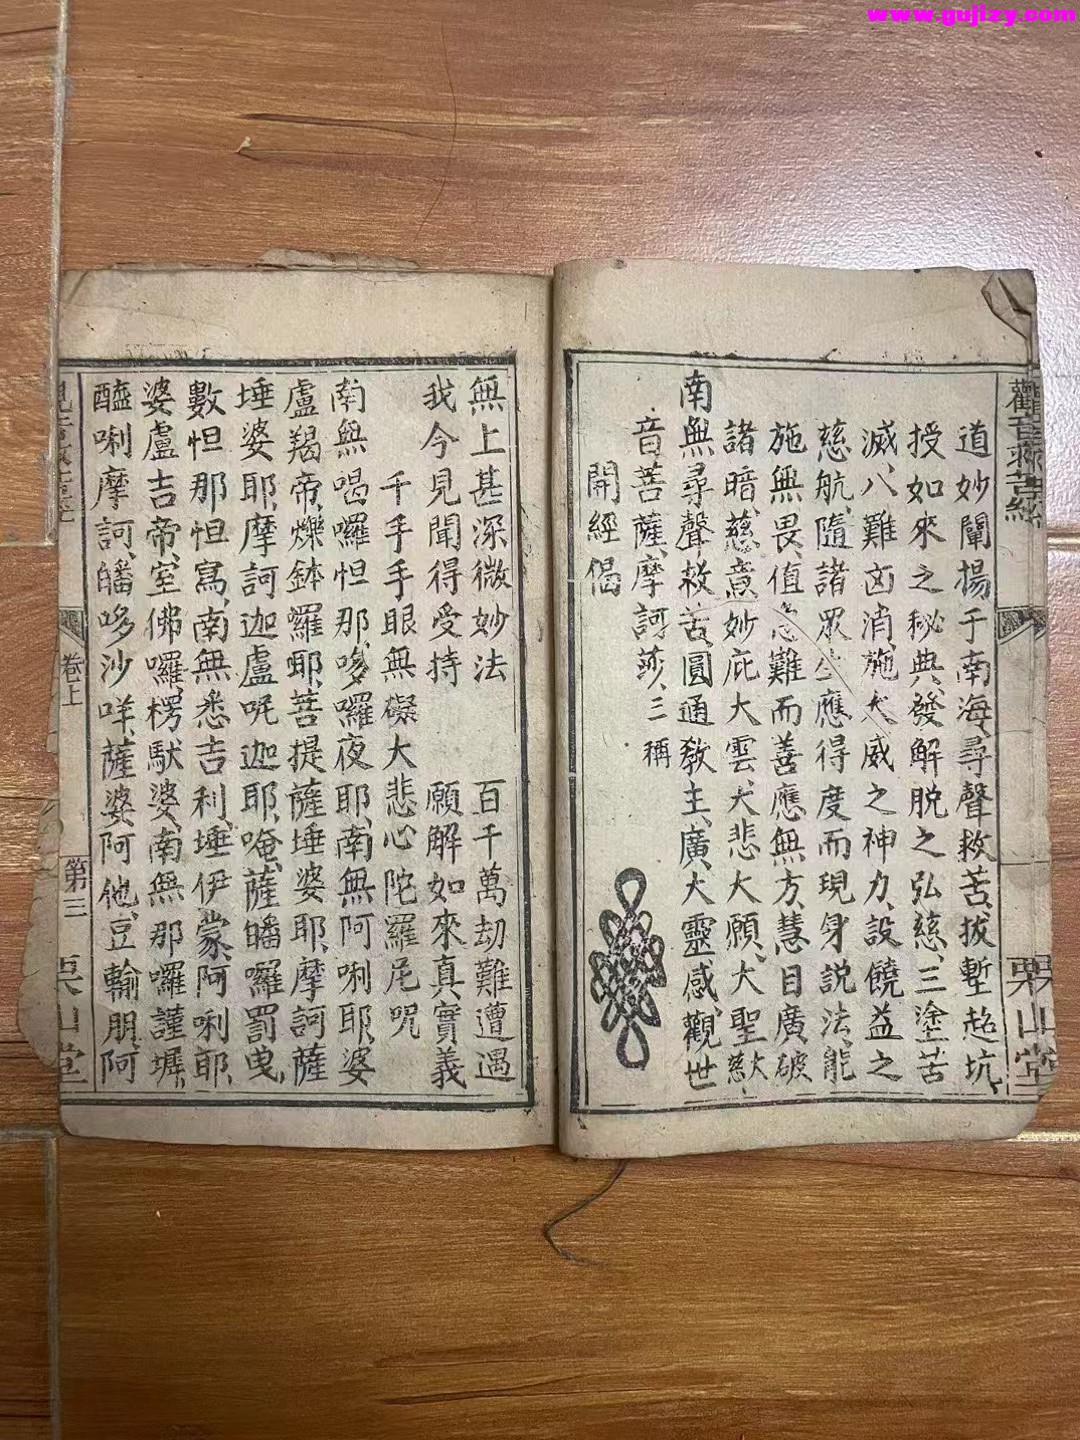 www.gujizy.com
觀音救苦經
栗山堂
道妙闡揚于南海、尋聲救苦、拔塹起坑
授如來之秘典、發解脫之弘慈、三塗苦
滅、八難凶消、施大威之神力、設饒益之
慈航、隨諸眾生應得度而現身說法、能
施無畏、值急難而善應無方、慧目廣破
諸暗、慈意妙庇大雲、大悲大願、大聖大慈
南無尋聲救苦、圓通教主、廣大靈感、觀世
音菩薩、摩訶莎、三稱
開經偈
無上甚深微妙法 百千萬劫難遭遇
我今見聞得受持 願解如來真實義
千手千眼無礙大悲心陀羅尼咒
南無喝囉怛那、哆囉夜耶、南無阿唎耶、婆
盧羯帝、爍鉢囉耶、菩提薩埵婆耶、摩訶薩
埵婆耶、摩訶迦盧呢迦耶、唵、薩皤囉罰曳、
數怛那怛寫、南無悉吉利、埵伊、蒙、阿唎耶、
婆盧吉帝、室佛囉、楞馱婆、南無那囉謹墀、
醯唎摩訶、皤哆沙咩、薩婆阿他、豆輸朋、阿
卷上
第三
栗山堂